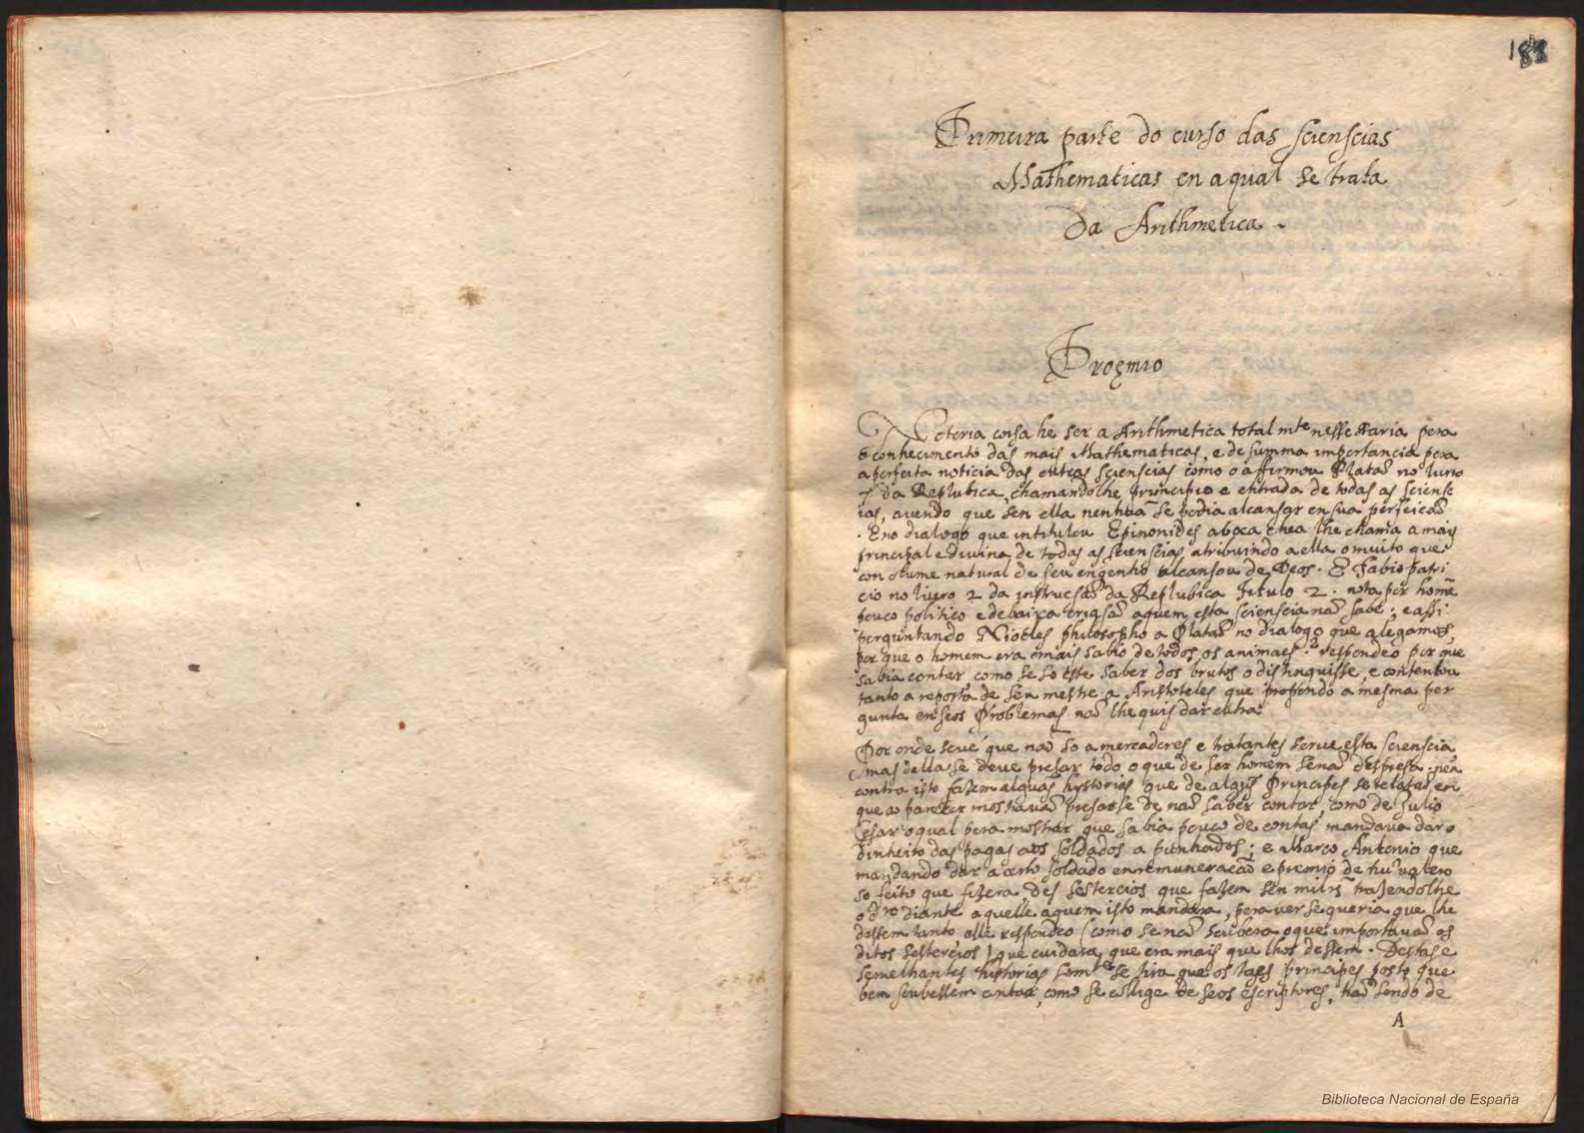 Primeira parte do curso das scienscias
Mathematicas en a qual se trata
da Arithmetica.
Proęmio
Notoria coisa he ser a Arithmetica total mte nessessaria pera
o conhecimento das mais Mathematicas, e de summa importancia pera
a perfeita noticia das outras scienscias como o affirmou Platão no livro
7 da Replubica, chamandolhe principio e entrada de todas as sciens
ias, avendo que sen ella nenhũa se podia alcansar en sua perfeicaõ
. E no dialogo que intitulou Epinonides a boca chea lhe chama a mais
principal e divina de todas as scienscias atribuindo a ella o muito que
con o lume natural de seu engenho alcansou de Deos. E Fabio patri
cio no livro 2 da instrucsaõ da Replubica Titulo 2. nota por home
pouco politico e de baixa criaçaõ aquem esta scienscia naõ sabe; e assi
perguntando Niocles philosopho a Plataõ no dialogo que alegamos,
por que o homem era o mais sabio de todos os animaes. respondeo por que
sabia contar, como se so este saber dos brutos o distinguisse, e contentou
tanto a reposta de seu mestre a Aristoteles que propondo a mesma per
gunta en seos Problemas naõ lhe quis dar outra.
Por onde se vé que naõ so a mercadores e tratantes serve esta scienscia
mas della se deve presar todo o que de ser homem se naõ despresa. nẽ
contra isto fazem alguas hystorias que de algũs Principes se relataõ en
que ao parecer mostravaõ presarse de naõ saber contar, como de Julio
Cesar o qual pera mostrar que sabia pouco de contas mandava dar o
dinheiro das pagas aos soldados a punhados; e Marco Antonio que
mandando dar a certo soldado en remuneracaõ e premio de hũ valero
so feito que fizera des sestercios que fazem sen mil rs trazendolhe
o dro diante aquelle aquem isto mandara, pera ver se queria que lhe
dessem tanto elle respondeo (como se naõ soubera o que importavaõ os
ditos sestercios) que cuidava que era mais que lhos dessem. Destas e
semelhantes historias somte se tira que os taes principes posto que
bem soubessem contar, como se collige de seos escriptores, naõ sendo de
A
Biblioteca Nacional de España